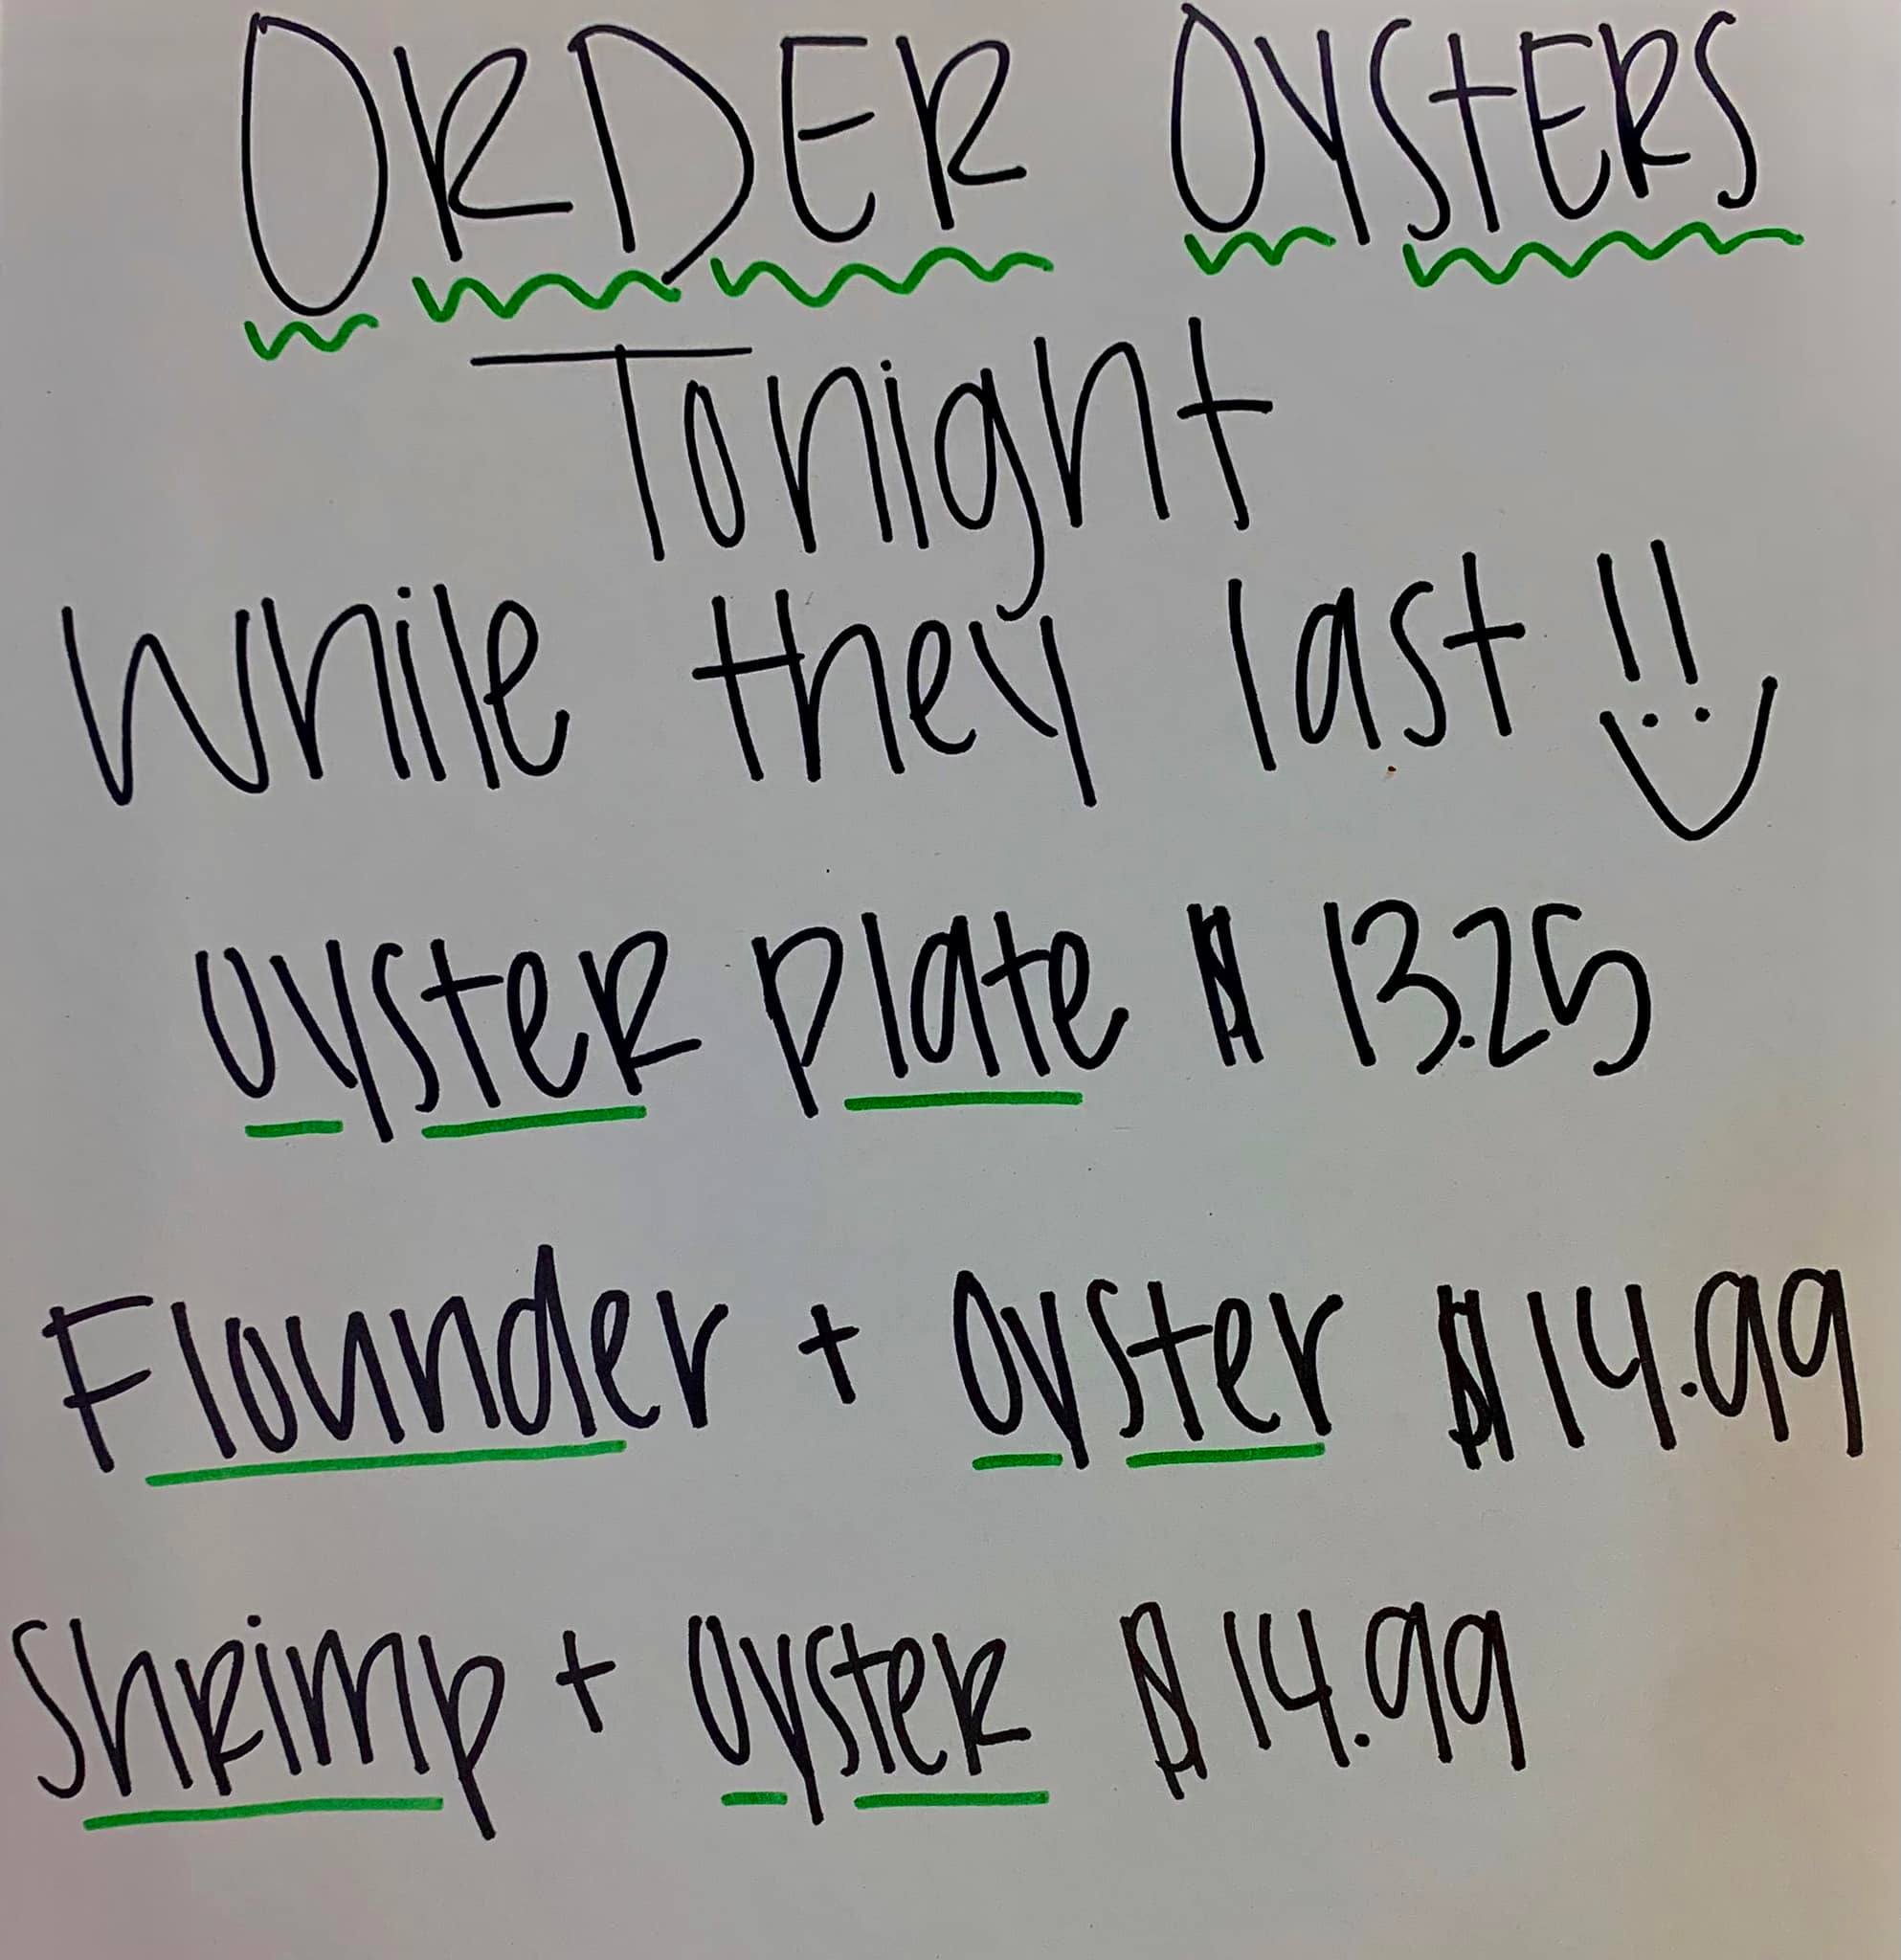 ORDER OYStERS
Tonight
While they last !! :)
OysteR plate $ 13.25
Flounder + Oyster $14.99
ShRimp + OysteR $14.99